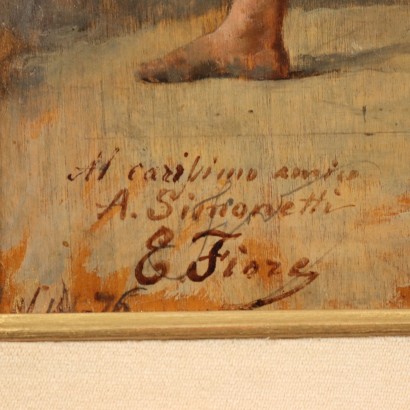 Al carissimo amico
A. Simonetti
E Fiore
76